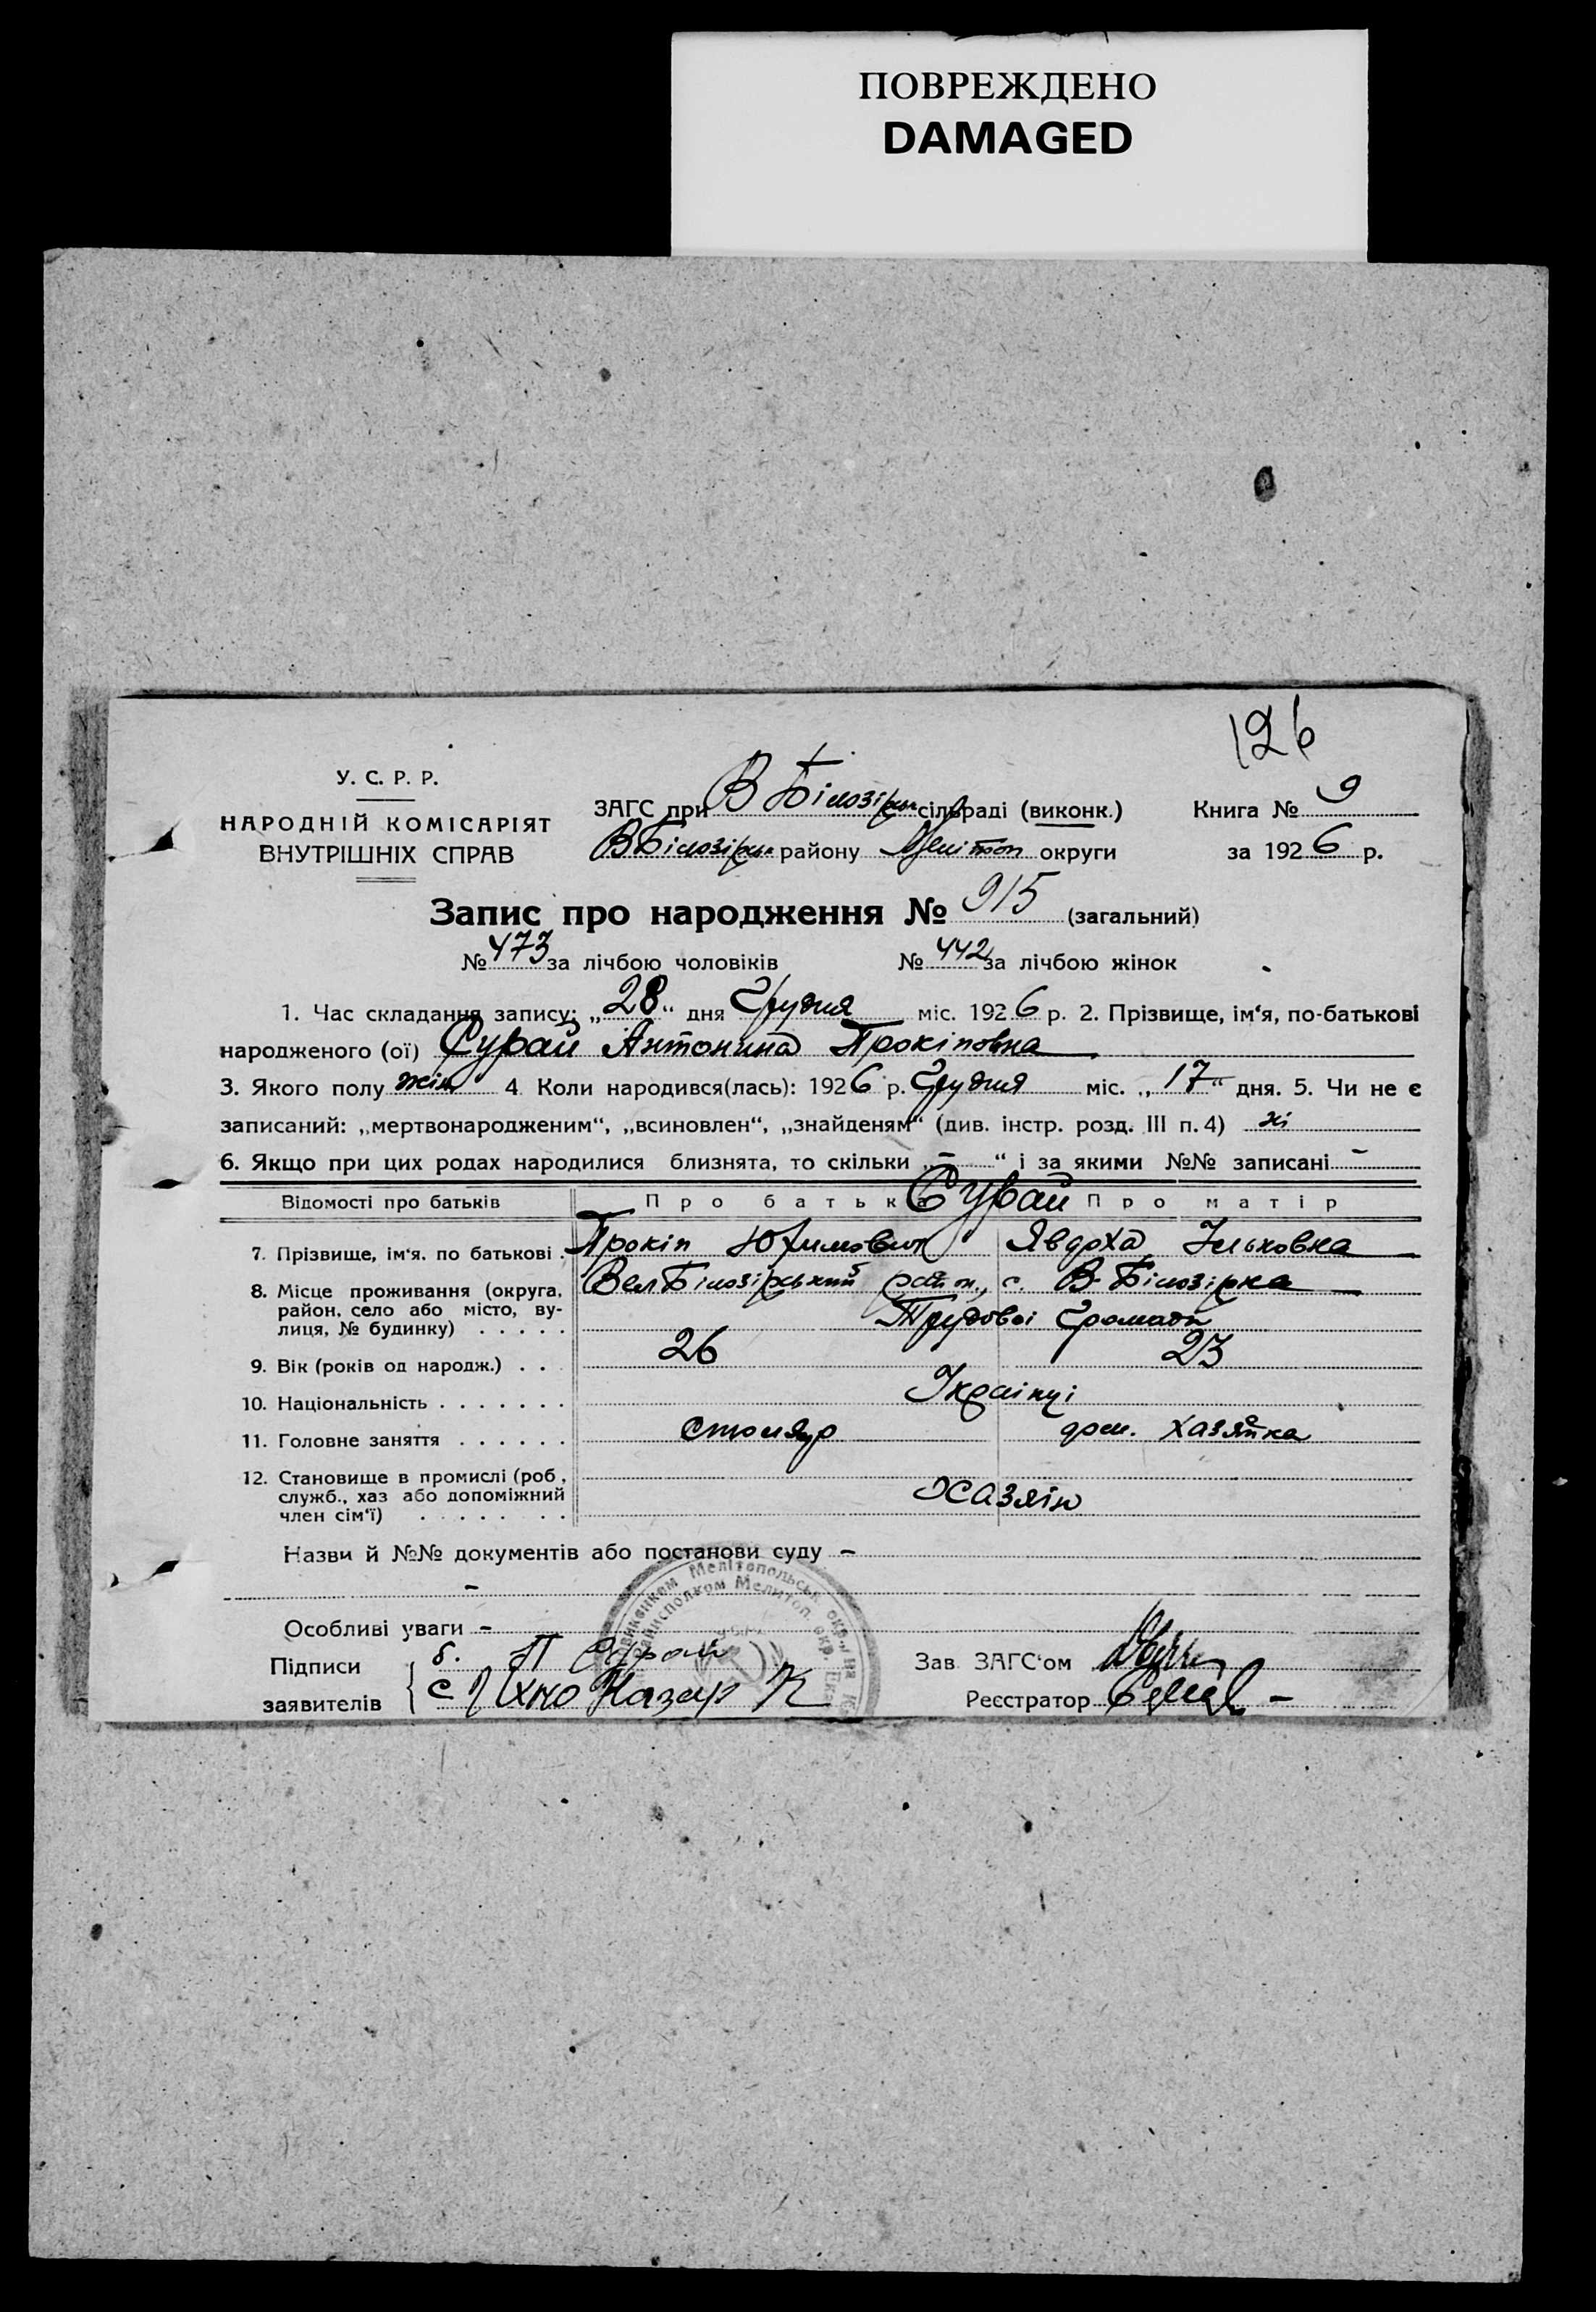 ПОВРЕЖДЕНО
DAMAGED
126
У. С. Р. Р.
НАРОДНІЙ КОМІСАРІЯТ
ВНУТРІШНІХ СПРАВ
ЗАГС при В Білозірськ сільраді (виконк.)
В Білозірськ району Меліtоп округи
Книга № 9
за 1926 р.
Запис про народження № 915 (загальний)
№ 473 за лічбою чоловіків № 442 за лічбою жінок
1. Час складання запису: „28“ дня Грудня міс. 1926 р. 2. Прізвище, ім‘я, по-батькові
народженого (ої) Сурай Антонина Прокіповна
3. Якого полу жін 4. Коли народився(лась): 1926 р. Грудня міс. „17“ дня. 5. Чи не є
записаний: „мертвонародженим“, „всиновлен“, „знайденям“ (див. інстр. розд. III п. 4) ні
6. Якщо при цих родах народилися близнята, то скільки „–“ і за якими №№ записані –
Відомості про батьків Про батька Сурай Про матір
7. Прізвище, ім‘я. по батькові . Прокіп Юхимович Явдоха Ільковна
8. Місце проживання (округа, Вел Білозірський район, с. В-Білозірка
район, село або місто, ву-
лиця, № будинку) . . . . . Трудової Громади
9. Вік (років од народж.) . . 26 23
10. Національність . . . . . . . Українці
11. Головне заняття . . . . . . столяр дом. хазяйка
12. Становище в промислі (роб.,
служб., хаз або допоміжний хазяїн
член сім‘ї) . . . . . . .
Назви й №№ документів або постанови суду –
–
Особливі уваги –
Підписи б. П Сурай
заявителів с Назар К
Зав ЗАГС‘ом
Реєстратор